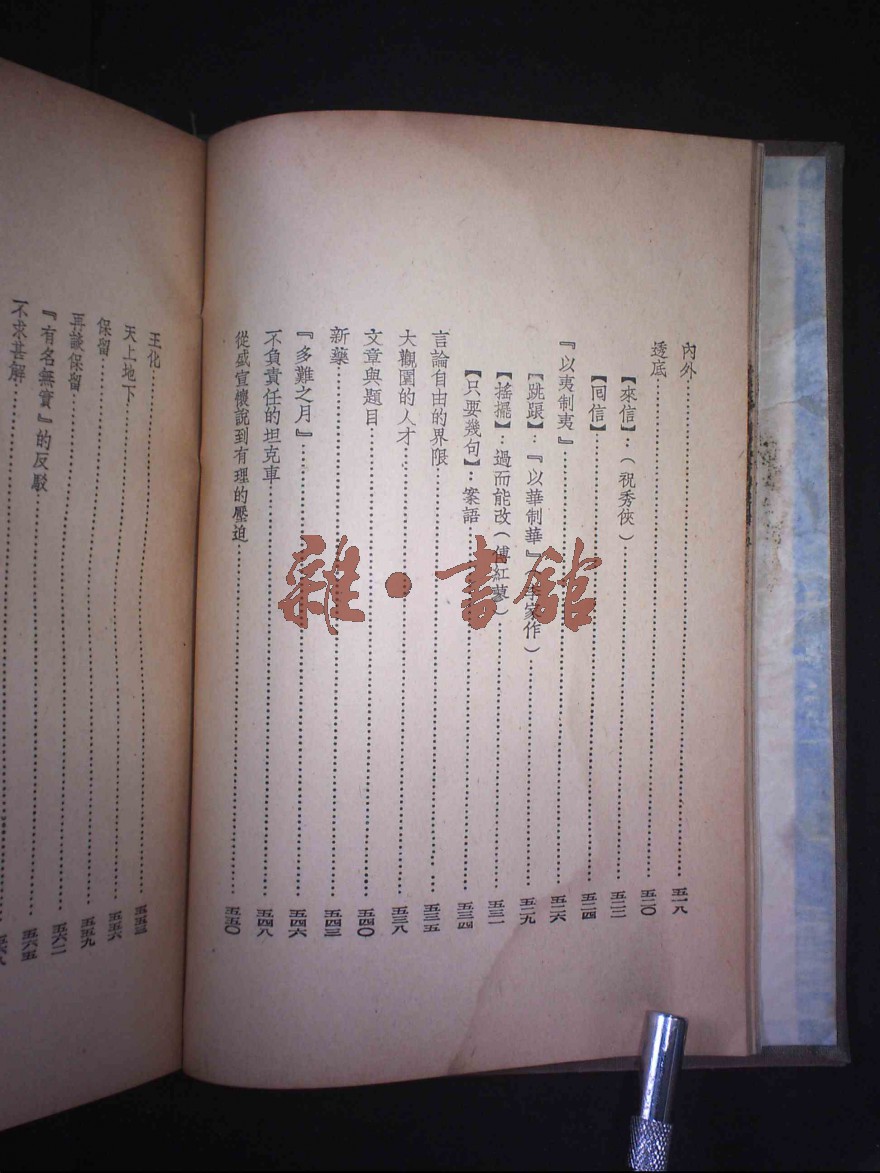 內外⋯⋯五一八
透底⋯⋯五二〇
【來信】:(祝秀俠)⋯⋯五二二
【回信】⋯⋯五二四
『以夷制夷』⋯⋯五二六
【跳踉】:『以華制華』(家作)⋯⋯五二九
【搖擺】:過而能改(傅紅蓼)⋯⋯五三一
【只要幾句】:案語⋯⋯五三四
言論自由的界限⋯⋯五三五
大觀園的人才⋯⋯五三八
文章與題目⋯⋯五四〇
新藥⋯⋯五四三
『多難之月』⋯⋯五四六
不負責任的坦克車⋯⋯五四八
從盛宣懷說到有理的壓迫⋯⋯五五〇
王化⋯⋯五五三
天上地下⋯⋯五五六
保留⋯⋯五五九
再談保留⋯⋯五六二
『有名無實』的反駁⋯⋯五六五
不求甚解⋯⋯五六八
雜·書館